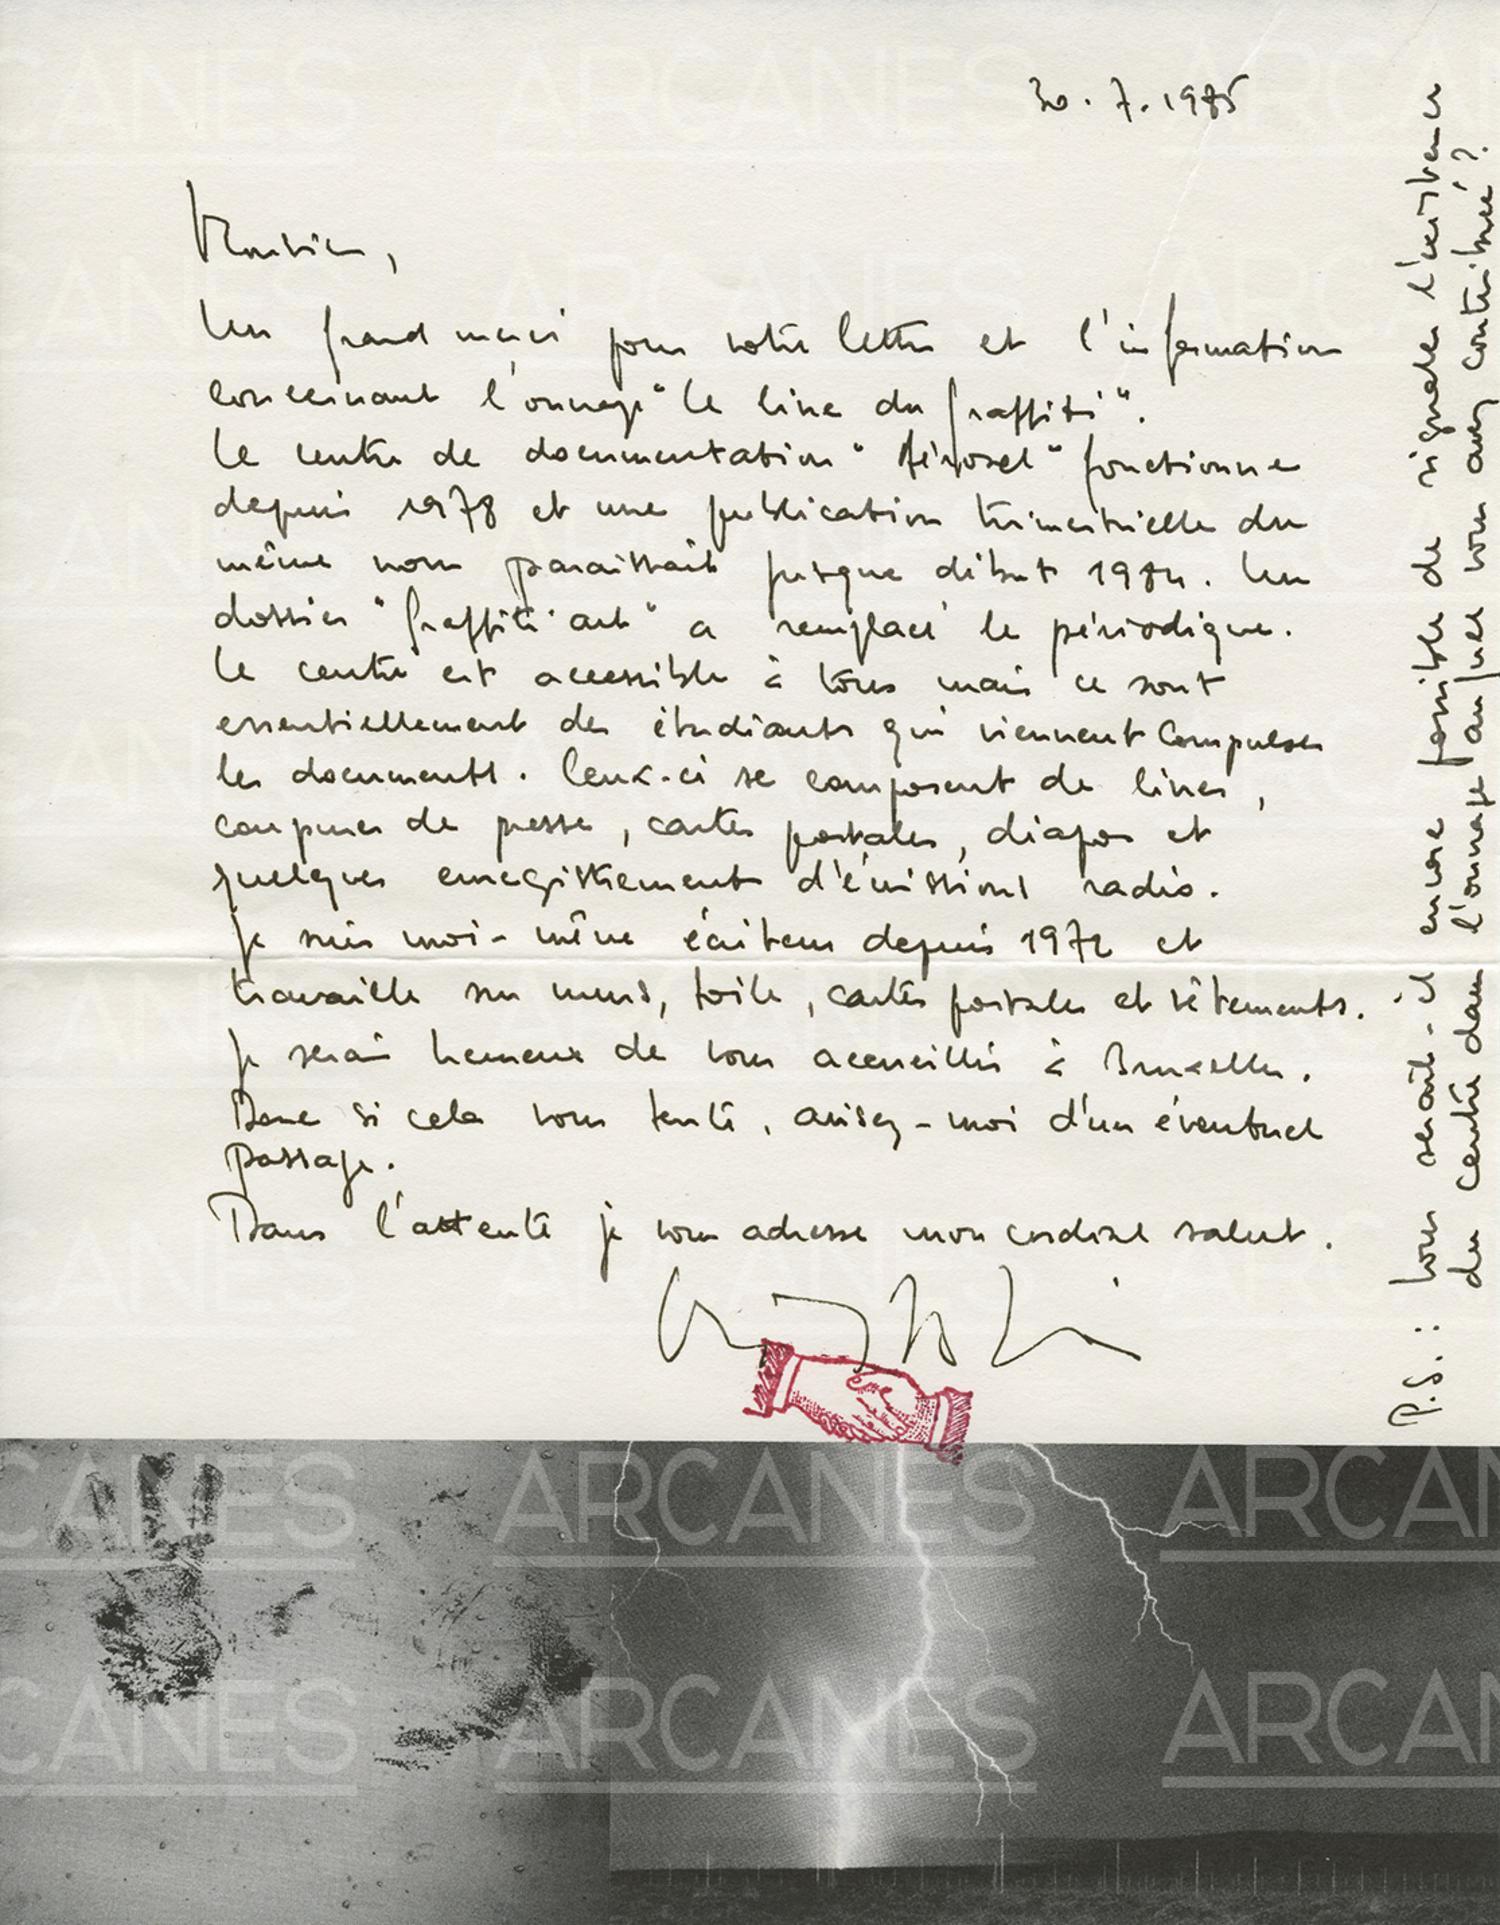 30.7.1985
Monsieur,
Un grand merci pour votre lettre et l'information
concernant l'ouvrage "le livre du graffiti".
Le centre de documentation "Aérosol" fonctionne
depuis 1978 et une publication trimestrielle du
même nom paraissait jusque début 1984. Un
dossier "graffiti art" a remplacé le périodique.
Le centre est accessible à tous mais ce sont
essentiellement des étudiants qui viennent compulser
les documents. Ceux-ci se composent de livres,
coupures de presse, cartes postales, diapos et
quelques enregistrement d'émissions radio.
Je suis moi-même écriteur depuis 1972 et
travaille sur murs, toile, cartes postales et vêtements.
Je serai heureux de vous accueillir à Bruxelles.
Donc si cela vous tente, avisez-moi d'un éventuel
passage.
Dans l'attente je vous adresse mon cordial salut.
P.S.: Vous serait-il encore possible de signaler l'existence
du centre dans l'ouvrage auquel vous avez contribué?
ARCANES